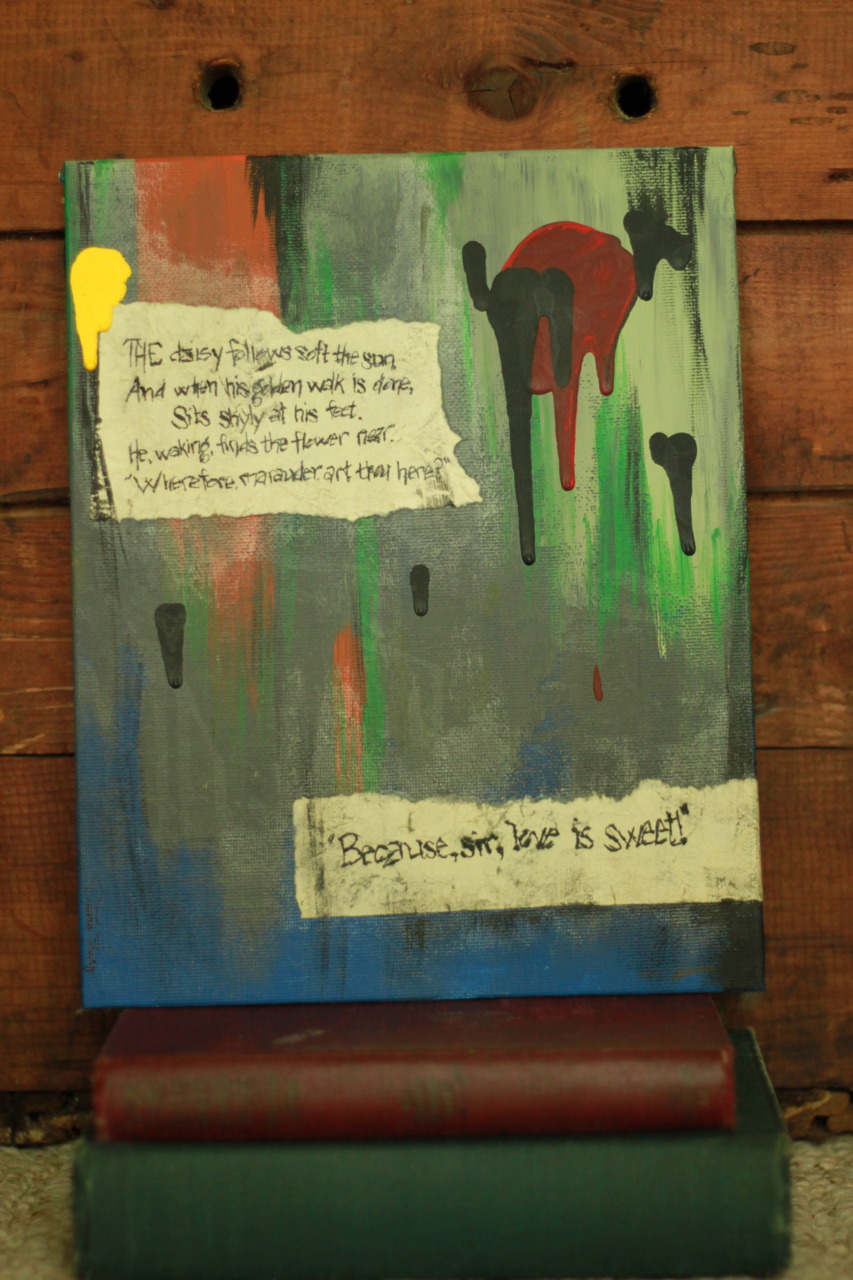 THE daisy follows soft the sun,
And when his golden walk is done,
Sits shyly at his feet.
He, waking, finds the flower near.
"Wherefore, marauder, art thou here?"
"Because, sir, love is sweet!"